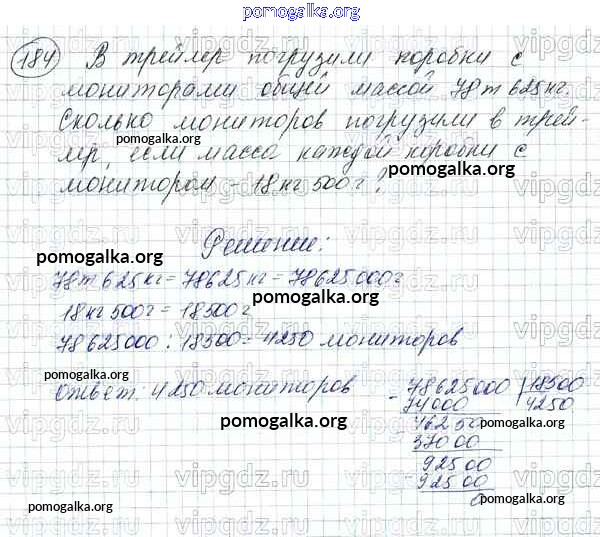 pomogalka.org
184 В трейлер погрузили коробки с
мониторами общей массой 78т 625кг.
Сколько мониторов погрузили в трей-
pomogalka.org
лер, если масса каждой коробки с
монитором - 18кг 500г?
pomogalka.org
Решение:
pomogalka.org
78т 625кг = 78625кг = 78625000г
pomogalka.org
18кг 500г = 18500г
78625000 : 18500 = 4250 мониторов
Ответ: 4250 мониторов
pomogalka.org
- 78625000 | 18500
74000 4250
- 46250
37000
- 92500
92500
0
pomogalka.org
pomogalka.org
pomogalka.org
vipgdz.ru